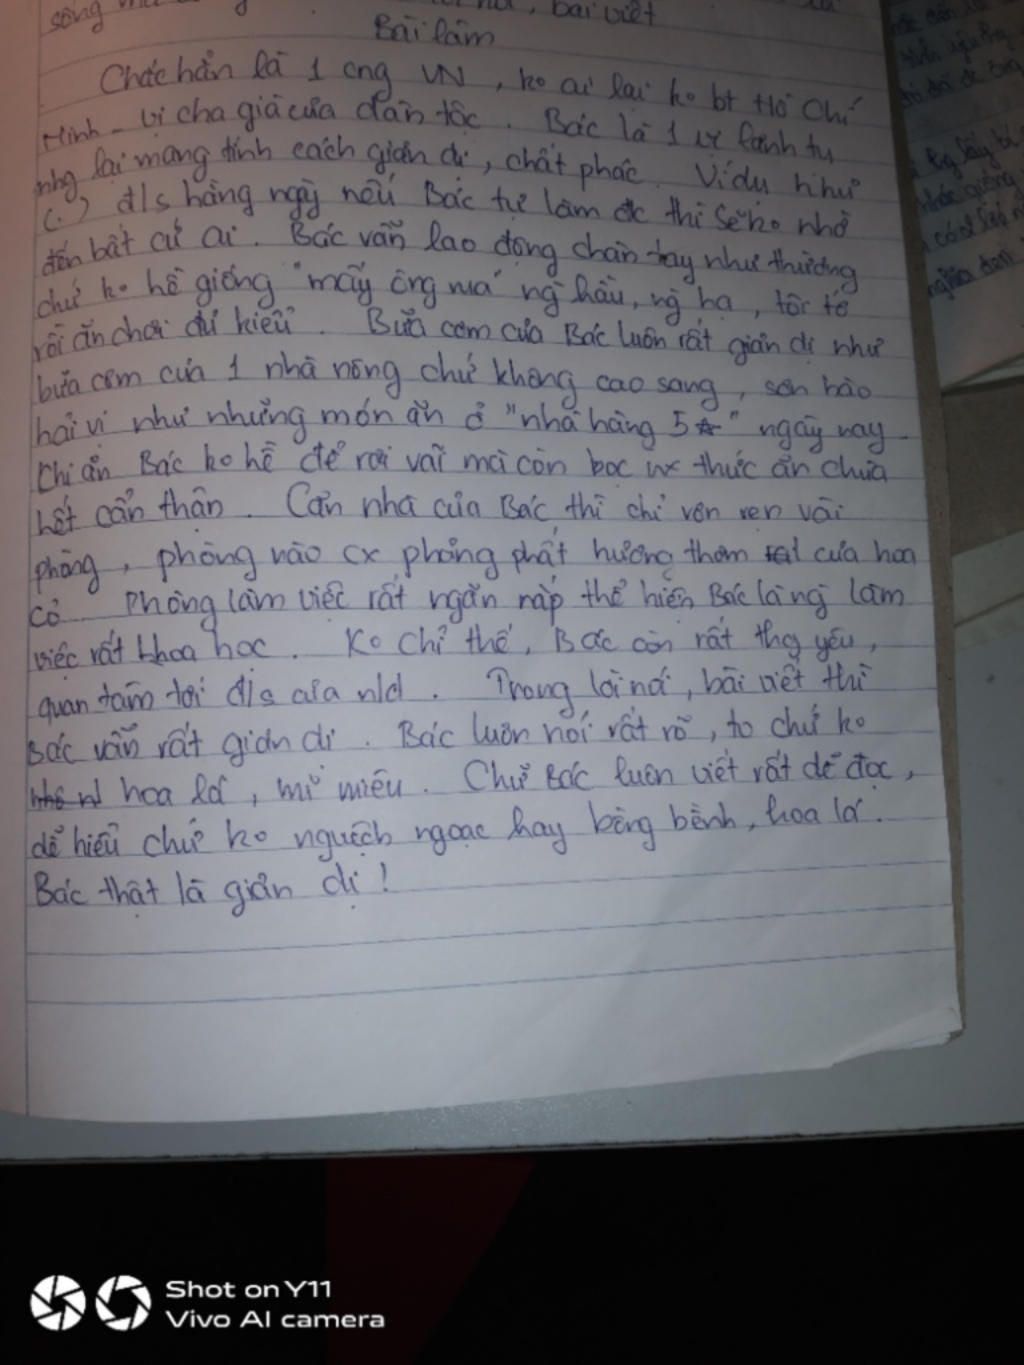 sống
bài viết
Bài làm
Chắc hẳn là 1 cng VN, ko ai lại ko bt Hồ Chí
Minh - vị cha già của dân tộc. Bác là 1 vị lãnh tụ
nhg lại mang tính cách giản dị, chất phác. Ví dụ như
(.) đ/s hằng ngày nếu Bác tự làm đc thì sẽ ko nhờ
đến bất cứ ai. Bác vẫn lao động chân tay như thường
chứ ko hề giống "mấy ông vua" ng hầu, ng hạ, tôi tớ
rồi ăn chơi đủ kiểu. Bữa cơm của Bác luôn rất giản dị như
bữa cơm của 1 nhà nông chứ không cao sang, sơn hào
hải vị như những món ăn ở "nhà hàng 5☆" ngày nay.
Khi ăn Bác ko hề để rơi vãi mà còn bọc thức ăn chưa
hết cẩn thận. Căn nhà của Bác thì chỉ vỏn vẹn vài
phòng, phòng nào cx phảng phất hương thơm của hoa
cỏ. Phòng làm việc rất ngăn nắp thể hiện Bác là ng làm
việc rất khoa học. Ko chỉ thế, Bác còn rất thg yêu,
quan tâm tới đ/s của n/d. Trong lời nói, bài viết thì
Bác vẫn rất giản dị. Bác luôn nói rất rõ, to chứ ko
hoa lá, mĩ miều. Chữ Bác luôn viết rất dễ đọc,
dễ hiểu chứ ko nguệch ngoạc hay bồng bềnh, hoa lá.
Bác thật là giản dị!
Shot on Y11
Vivo AI camera